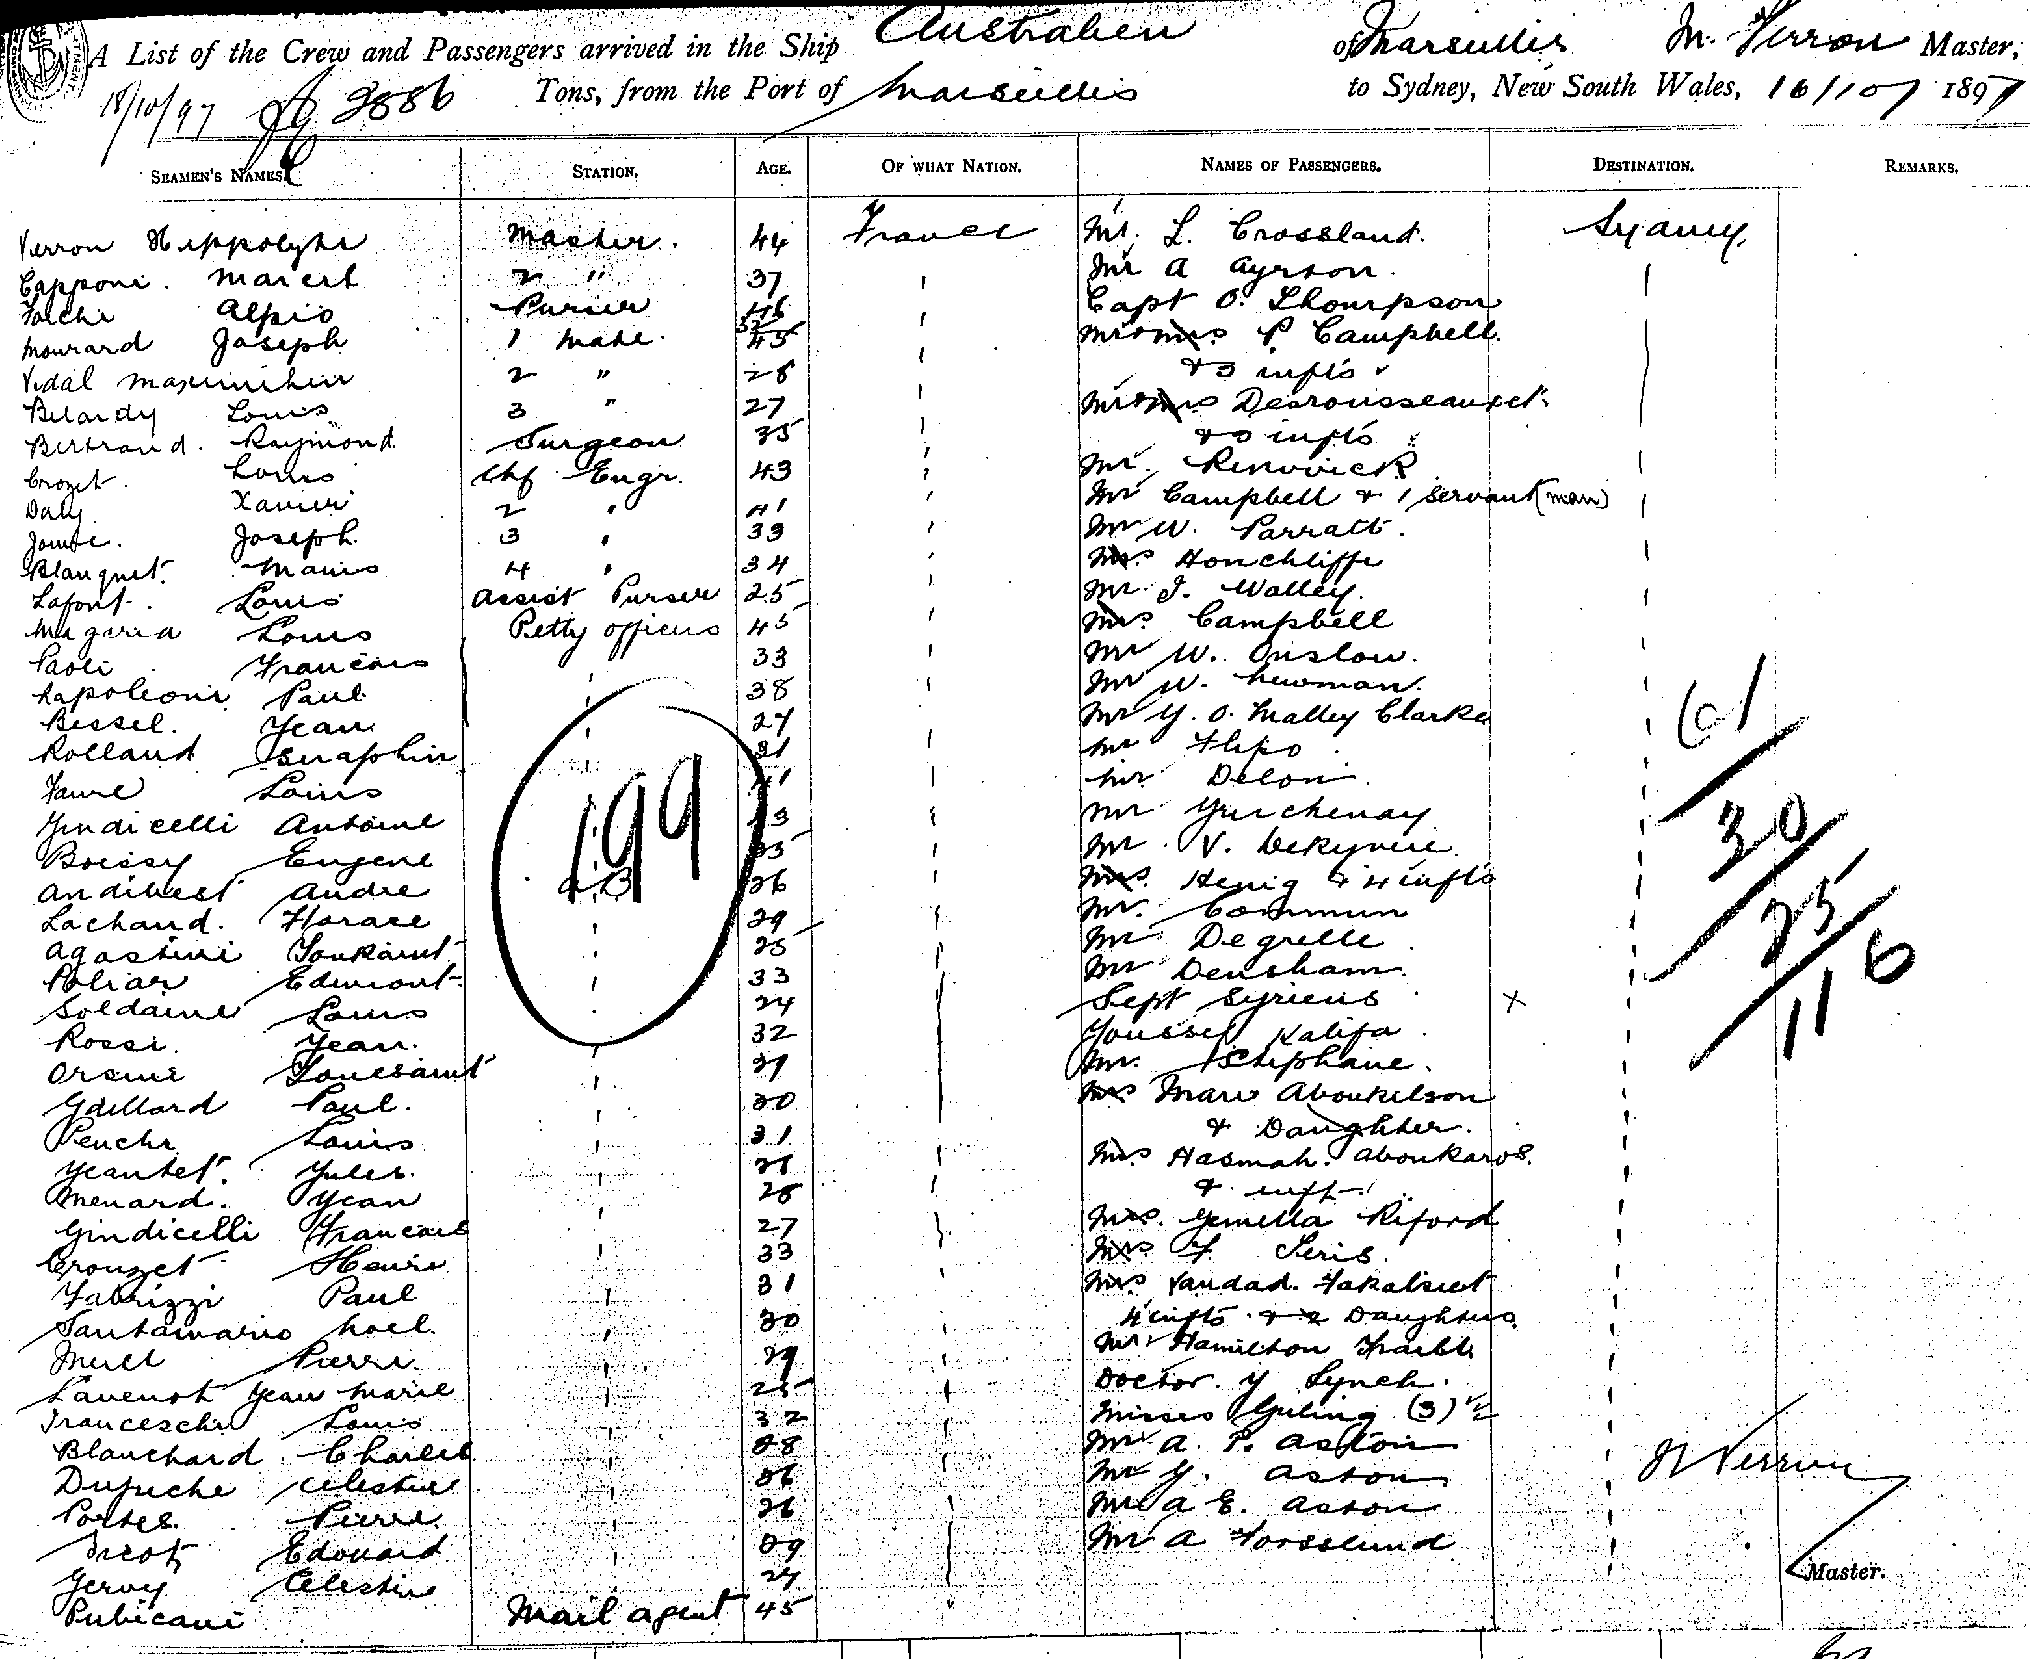 A List of the Crew and Passengers arrived in the Ship Australien of Marseilles M. Verron Master,
18/10/97 3886 Tons, from the Port of Marseilles to Sydney, New South Wales, 16/10/ 1897
SEAMEN'S NAMES. STATION. AGE. OF WHAT NATION. NAMES OF PASSENGERS. DESTINATION. REMARKS.
Verron Hippolyte Master. 44 France Mr. L. Crossland. Sydney.
Capponi. Marcel 2 " 37 Mr A Ayrton.
Alpio Purser 46 Capt O. Thompson
Mourard Joseph 1 Mate. 45 Mr & Mrs P Campbell
Vidal Maximilien 2 " 28 & 3 infts
Belardy Louis 3 " 27 Mr & Mrs Desrousseaux
Bertrand. Raymond. Surgeon 35 infts
Crozet. Louis Chf Engr. 43 Mr. Renwick
Daly. Xavier 2 " 41 Mr Campbell & 1 servant (man)
Joseph 3 " 33 Mr W. Parratt.
Blanquet. Marius 4 " 34 Mrs Honchliffe
Lafont. Louis Assist Purser 25 Mr. J. Walley.
Louis Petty officers 45 Mrs Campbell
Paoli Francois 33 Mr W. Onslow.
Napoleoni Paul 38 Mr W. Newman.
Bessel. Jean 27 Mr J. O. Malley Clarke
Rolland Seraphin 31 Mr Flipo
Faure Louis 41 Mr Delon.
Gindicelli Antoine Mr
Boissy Eugene 35 Mr V. Dekyvere
Andibert Andre 26 Mrs. Henig & 4 infts
Lachaud. Horace 29 Mr. Commun
Agostini Toussaint 25 Mr Degrelle
Poliar Edmont 33 Mr Densham.
Soldaine Louis 24 Sept Syriens X
Rossi. Jean. 32 Youssef Kalifa
Orsini Toussaint 29 Mr. Stephane.
Gaillard Paul. 30 Mrs Marie Aboukelson
Penche Louis 31 & Daughter.
Jeantet. Jules. Mrs Hasmah. Aboukaros.
Menard. Jean 28 & inft
Gindicelli Francois 27 Mrs. Riford
Crouzet Henri 33 Mrs F Seris.
Fabrizzi Paul 31 Mrs
Santamario Noel. 30 4 infts & 2 Daughters.
Pierre. 29 Mr Hamilton
Lavenot Jean Marie 25 Doctor. J Lynch.
Franceschi Louis 32 Misses (3)
Blanchard Charles 28 Mr A. P. Aston
Dupuche Celestin 36 Mr J. Aston
Portes. Pierre 26 Mr A E. Aston
Edouard 29 Mr A Forsslund
Celestin 27
Pubicani Mail agent 45
199
61
30
25
116
H Verron
Master.